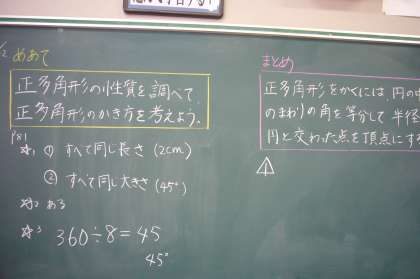 めあて
正多角形の性質を調べて、
正多角形のかき方を考えよう。
P81
☆1 ① すべて同じ長さ (2cm)
② すべて同じ大きさ (45°)
☆2 ある
☆3 360÷8=45
45°
まとめ
正多角形をかくには、円の中
のまわりの角を等分して半径
円と交わった点を頂点にする